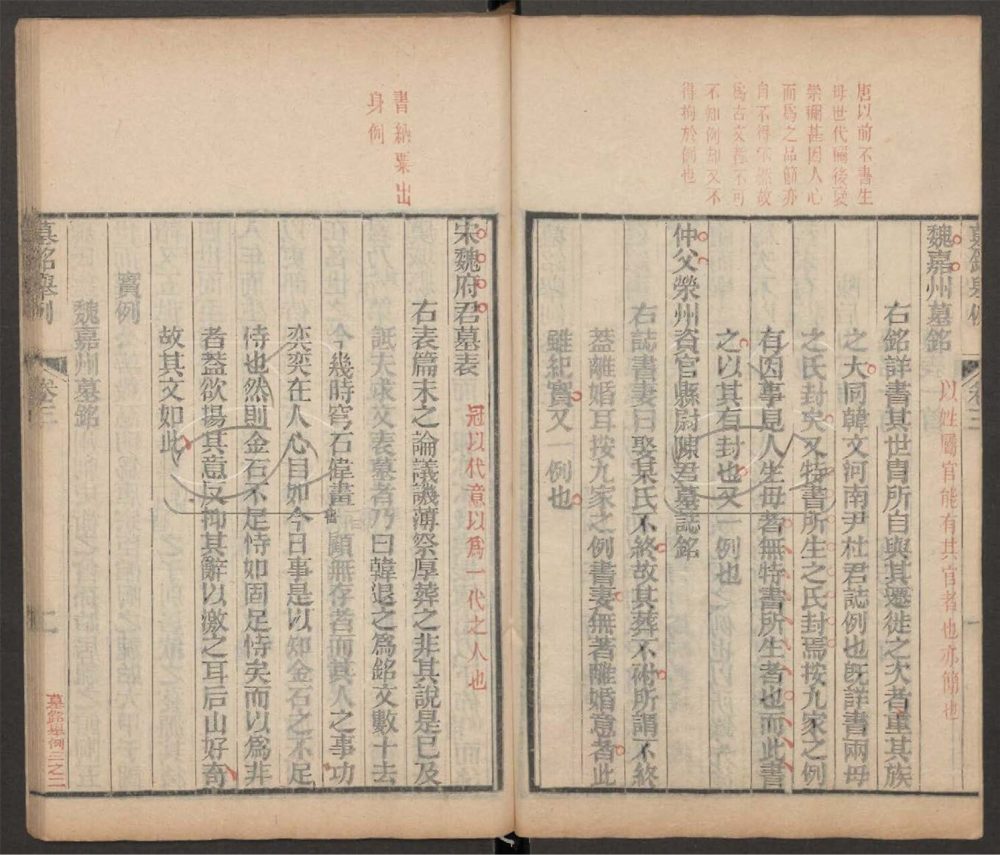 唐以前不書生
母世代隔後褒
崇禰甚因人心
而為之品節亦
自不得不然故
為古文者不可
不知例却又不
得拘於例也
魏嘉州墓銘
以姓屬官能有其官者也亦簡也
右銘詳書其世胄所自與其遷徙之次者重其族
之大同韓文河南尹杜君誌例也旣詳書兩母
之氏封矣又特書所生之氏封焉按九家之例
有因事見人生母者無特書所生者也而此書
之以其有封也又一例也
仲父榮州資官縣尉陳君墓誌銘
右誌書妻曰娶某氏不終故其葬不祔所謂不終
蓋離婚耳按九家之例書妻無著離婚意者此
雖紀實又一例也
書納粟出
身例
宋魏府君墓表
冠以代意以為一代之人也
右表篇末之論議譏薄祭厚葬之非其說是已及
詆夫求文表墓者乃曰韓退之為銘文數十去
今幾時穹石偉畫顧無存者而其人之事功
奕奕在人心目如今日事是以知金石之不足
恃也然則金石不足恃如固足恃矣而以為非
者蓋欲揚其意反抑其辭以激之耳后山好奇
故其文如此
墓銘舉例
卷三
二
墓銘舉例三之二